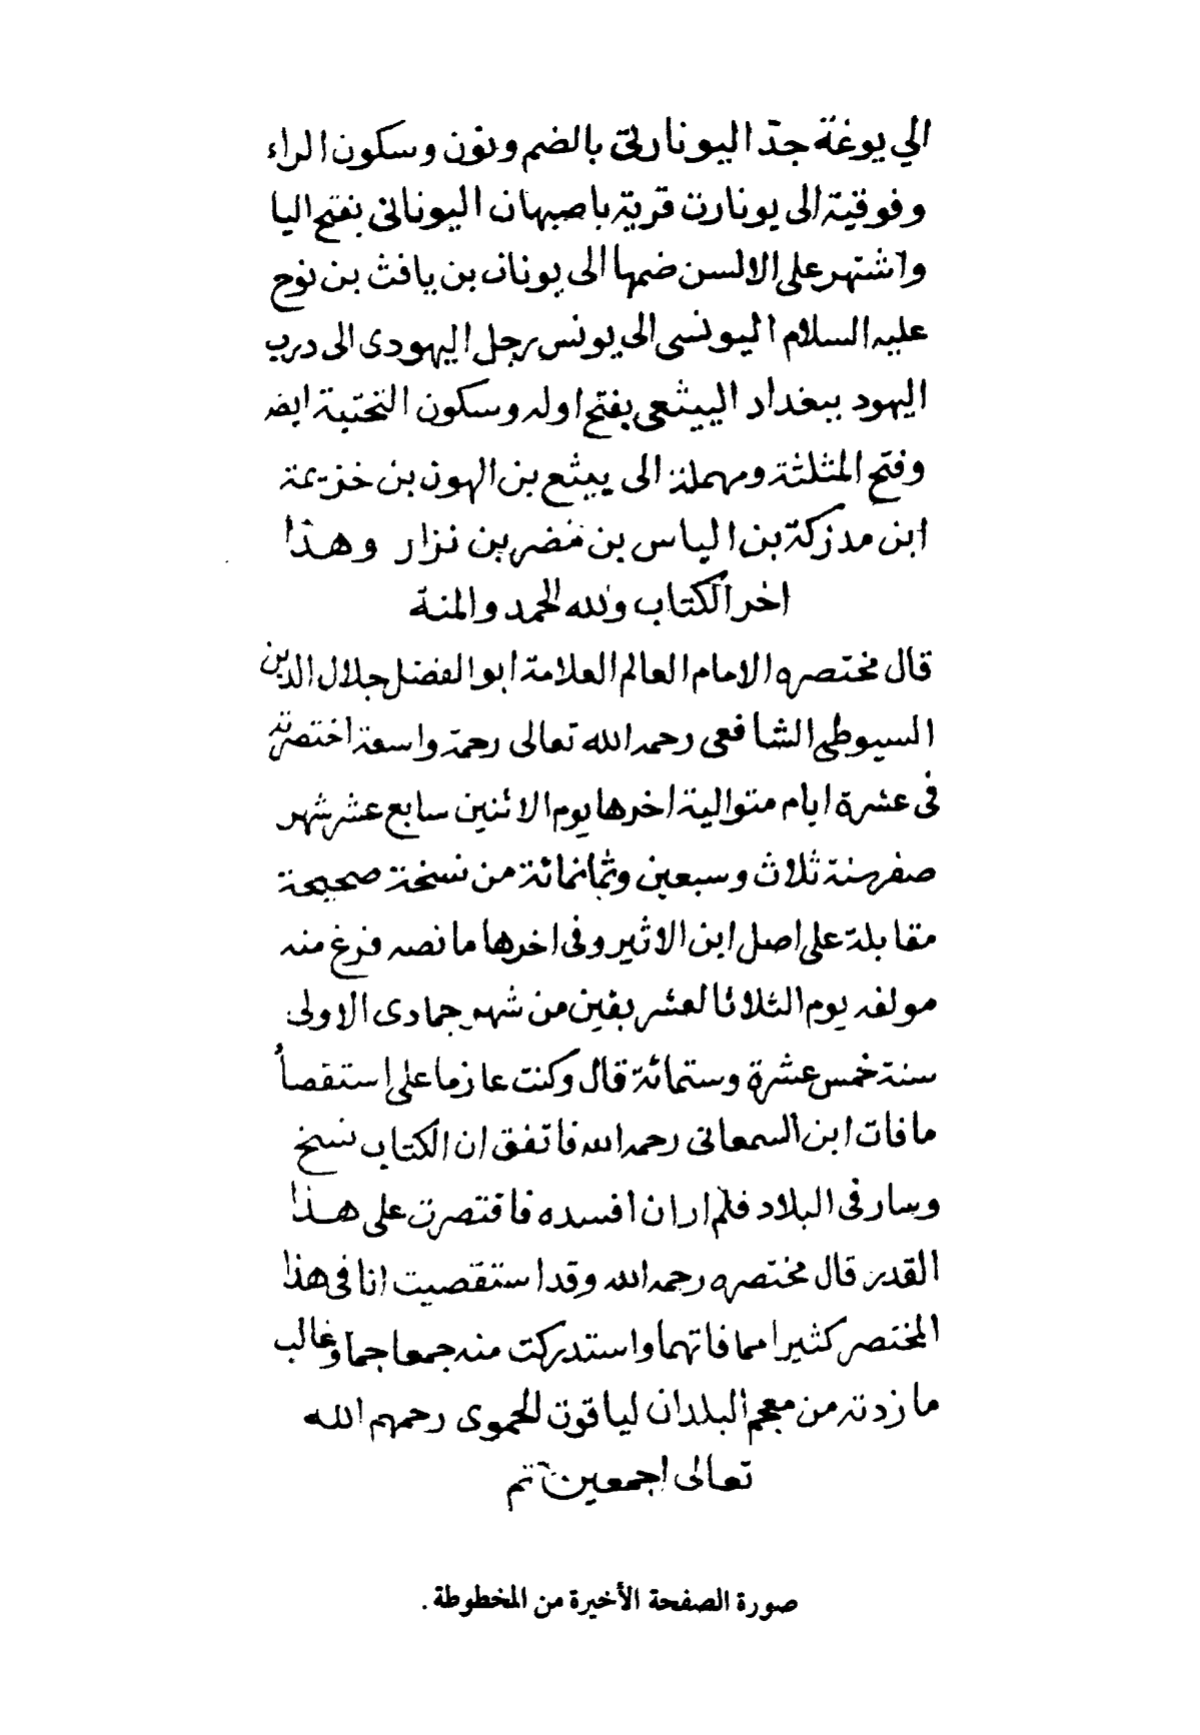 الي يوغة جدّ اليونارتى بالضم ونون وسكون الراء
وفوقية الى يونارت قرية باصبهان اليونانى بفتح اليا
واشتهر على الالسن ضمها الى يونان بن يافث بن نوح
عليه السلام اليونسى الى يونس رجل اليهودى الى درب
اليهود ببغداد الييثعى بفتح اوله وسكون التحتية ايضا
وفتح المثلثة ومهملة الى ييثع بن الهون بن خزيمة
ابن مدركة بن الياس بن مضر بن نزار وهذا
اخر الكتاب ولله الحمد والمنة
قال مختصره الامام العالم العلامة ابو الفضل جلال الدين
السيوطى الشافعى رحمه الله تعالى رحمة واسعة اختصرته
فى عشرة ايام متوالية اخرها يوم الاثنين سابع عشر شهر
صفر سنة ثلاث وسبعين وثمانمائة من نسخة صحيحة
مقابلة على اصل ابن الاثير وفى اخرها ما نصه فرغ منه
مولفه يوم الثلاثا لعشر بقين من شهر جمادى الاولى
سنة خمس عشرة وستمائة قال وكنت عازما على استقصأ
ما فات ابن السمعانى رحمه الله فاتفق ان الكتاب نسخ
وسار فى البلاد فلم ار ان افسده فاقتصرت على هذا
القدر قال مختصره رحمه الله وقد استقصيت انا فى هذا
المختصر كثيرا مما فاتهما واستدركت منه جمعا جما وغالب
ما زدته من معجم البلدان لياقوت الحموى رحمهم الله
تعالى اجمعين تم
صورة الصفحة الأخيرة من المخطوطة .